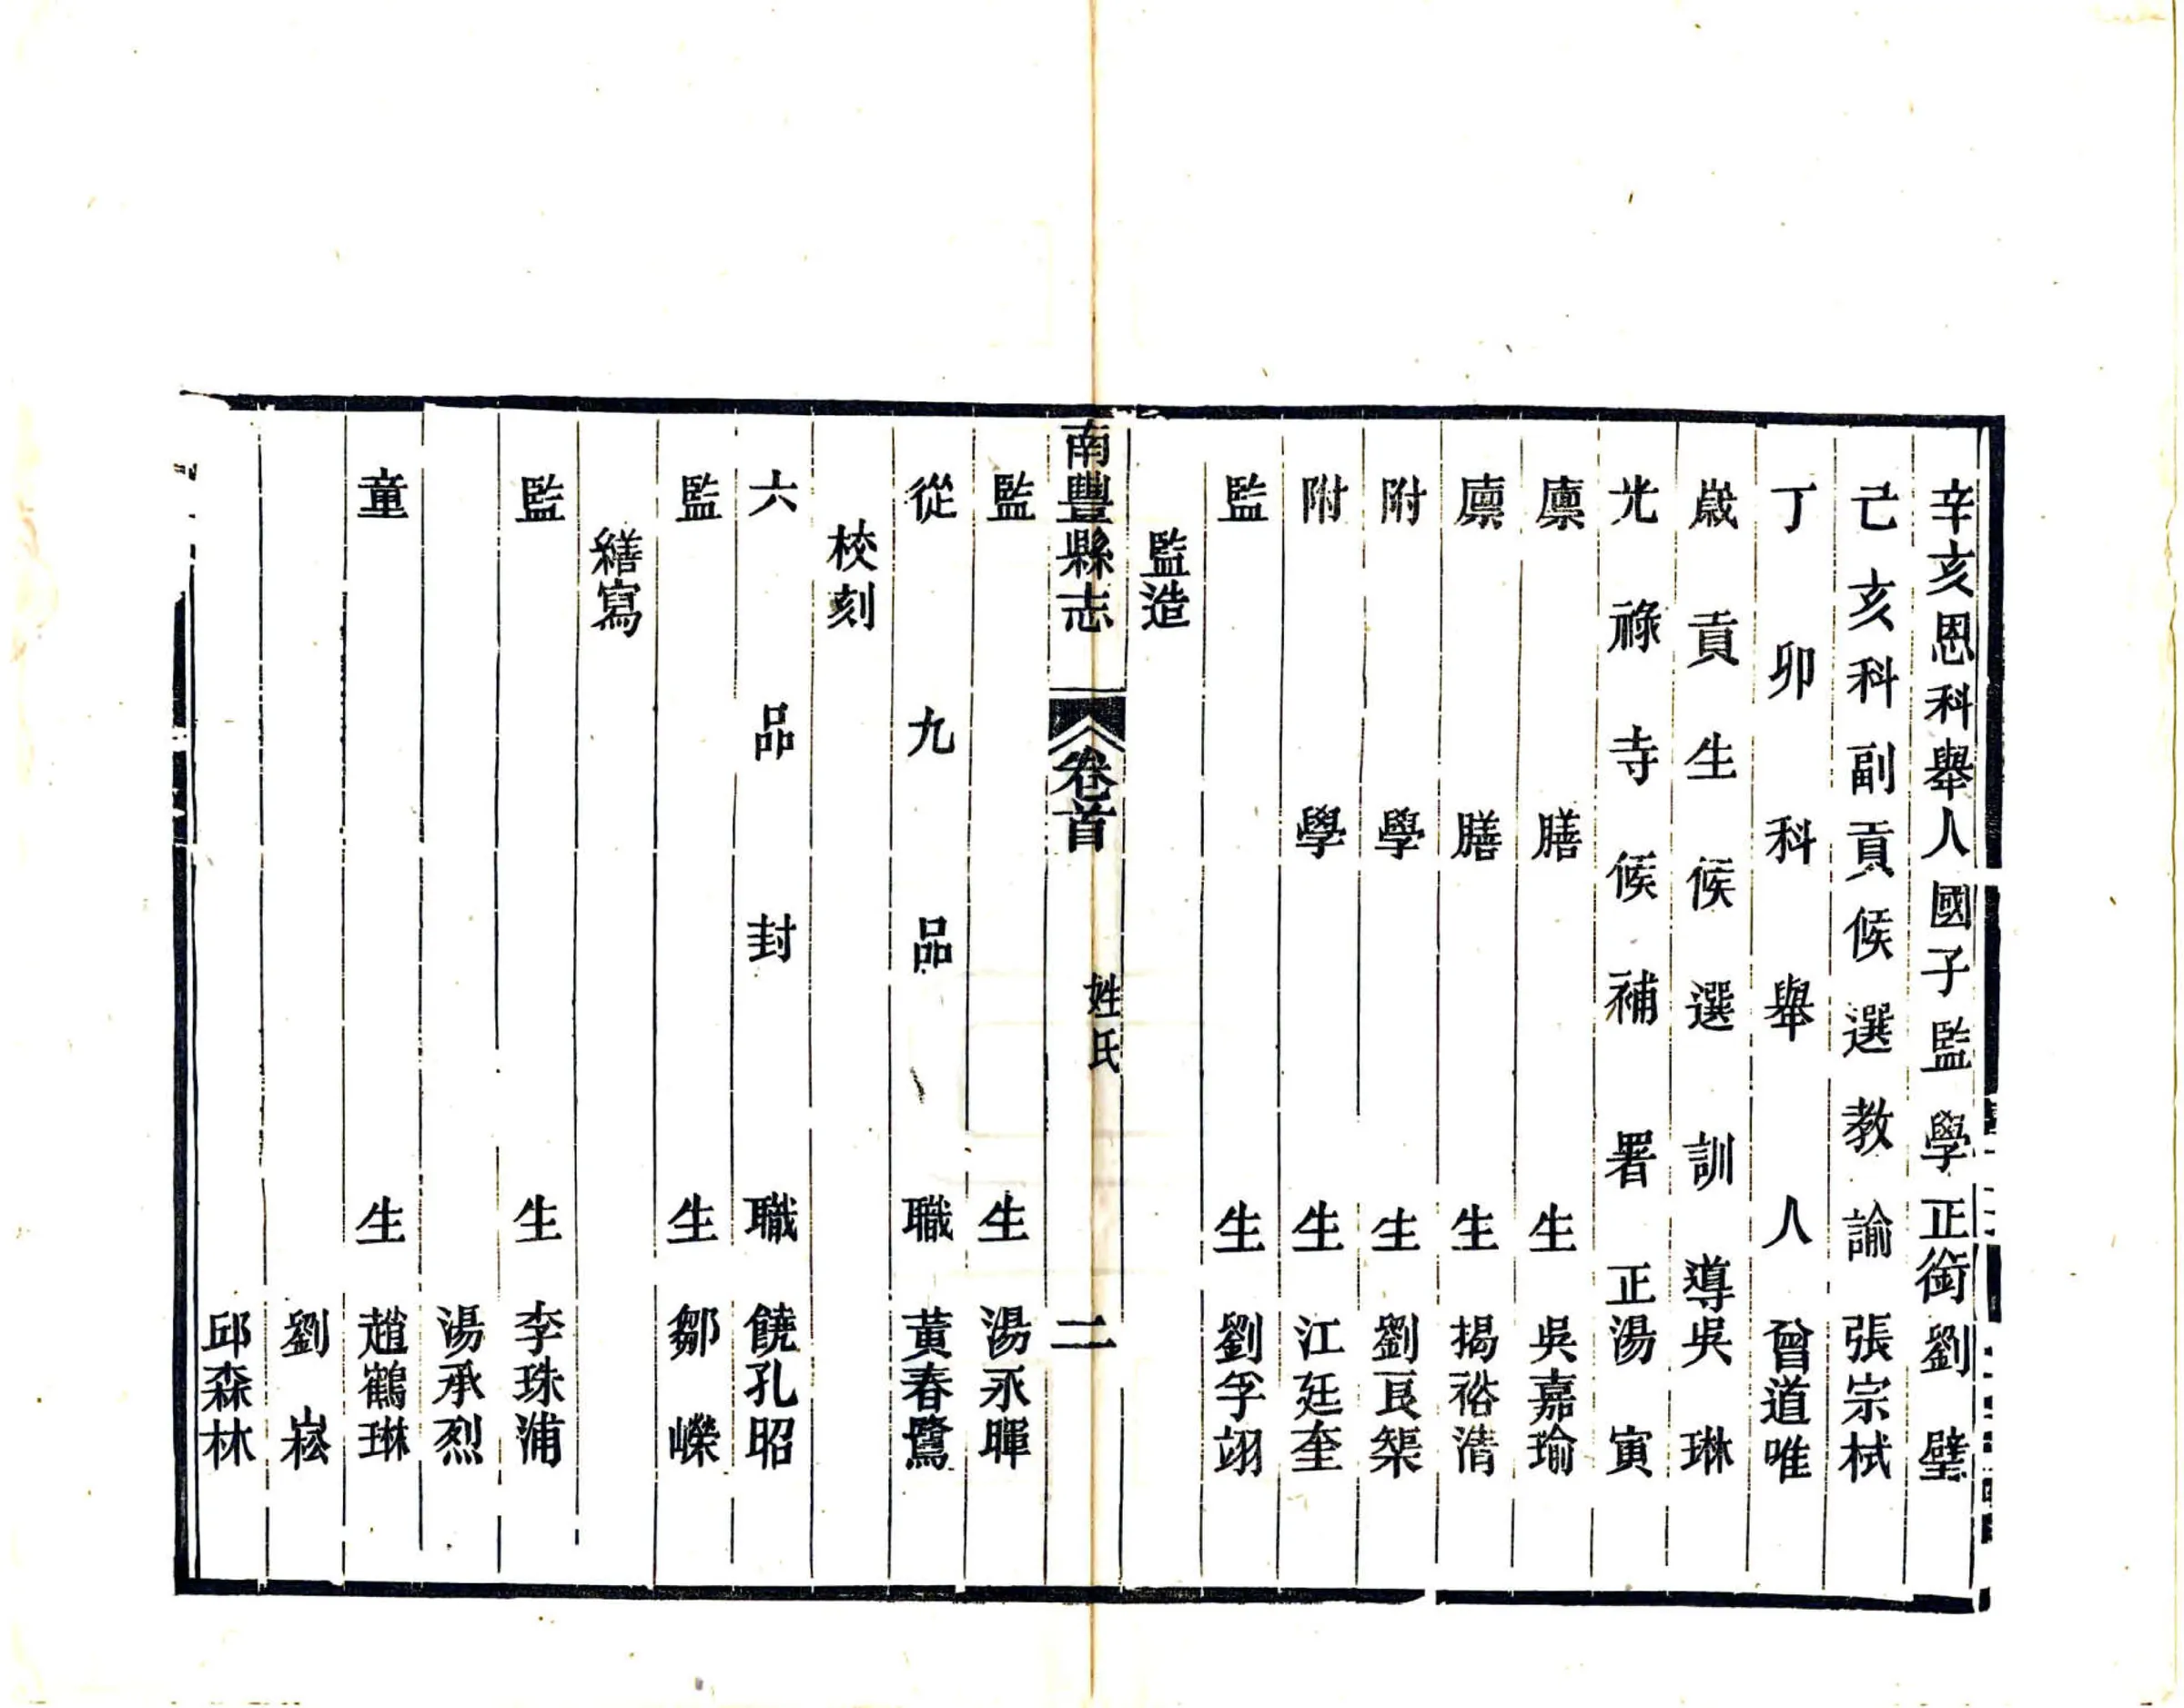 辛亥恩科舉人國子監學正銜劉璧
己亥科副貢候選教諭張宗栻
丁卯科舉人曾道唯
歲貢生候選訓導吳琳
光祿寺候補署正湯寅
廩膳生吳嘉瑜
廩膳生揭裕清
附學生劉良榘
附學生江廷奎
監生劉孚翊
監造
南豐縣志
卷首
姓氏
二
監生湯永暉
從九品職黃春鷺
校刻
六品封職饒孔昭
監生鄒嶸
繕寫
監生李珠浦
湯承烈
童生趙鶴琳
劉崧
邱森林